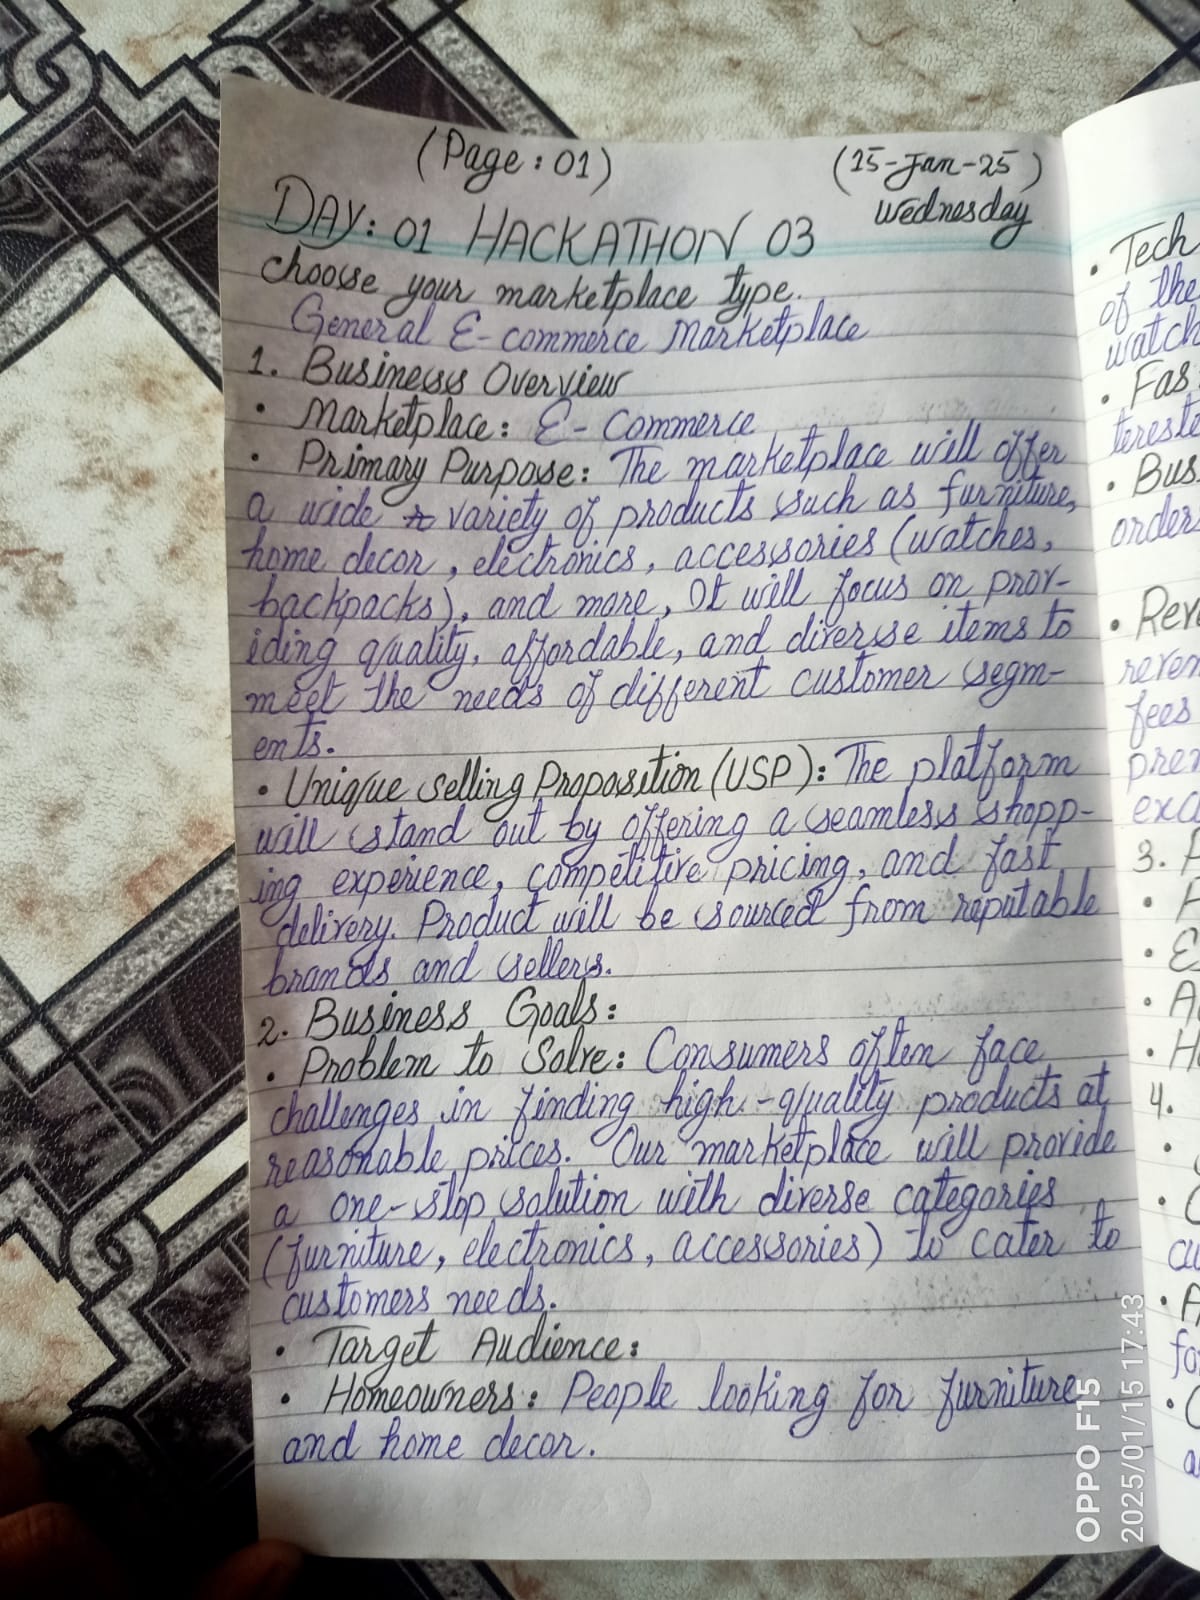 (Page: 01)
(15-Jan-25)
Wednesday
DAY: 01 HACKATHON 03
choose your marketplace type.
General E-commerce Marketplace
1. Business Overview
• Marketplace: E-Commerce
• Primary Purpose: The marketplace will offer
a wide variety of products such as furniture,
home decor, electronics, accessories (watches,
backpacks), and more, It will focus on prov-
iding quality, affordable, and diverse items to
meet the needs of different customer segm-
ents.
• Unique Selling Proposition (USP): The platform
will stand out by offering a seamless shopp-
ing experience, competitive pricing, and fast
delivery. Product will be sourced from reputable
brands and sellers.
2. Business Goals:
• Problem to Solve: Consumers often face
challenges in finding high-quality products at
reasonable prices. Our marketplace will provide
a one-stop solution with diverse categories
(furniture, electronics, accessories) to cater to
customers needs.
• Target Audience:
• Homeowners: People looking for furniture
and home decor.
• Tech
of the
watch
• Fas
tereste
• Bus
order
• Reve
reven
fees
prem
exc
3.
4.
OPPO F15
2025/01/15 17:43